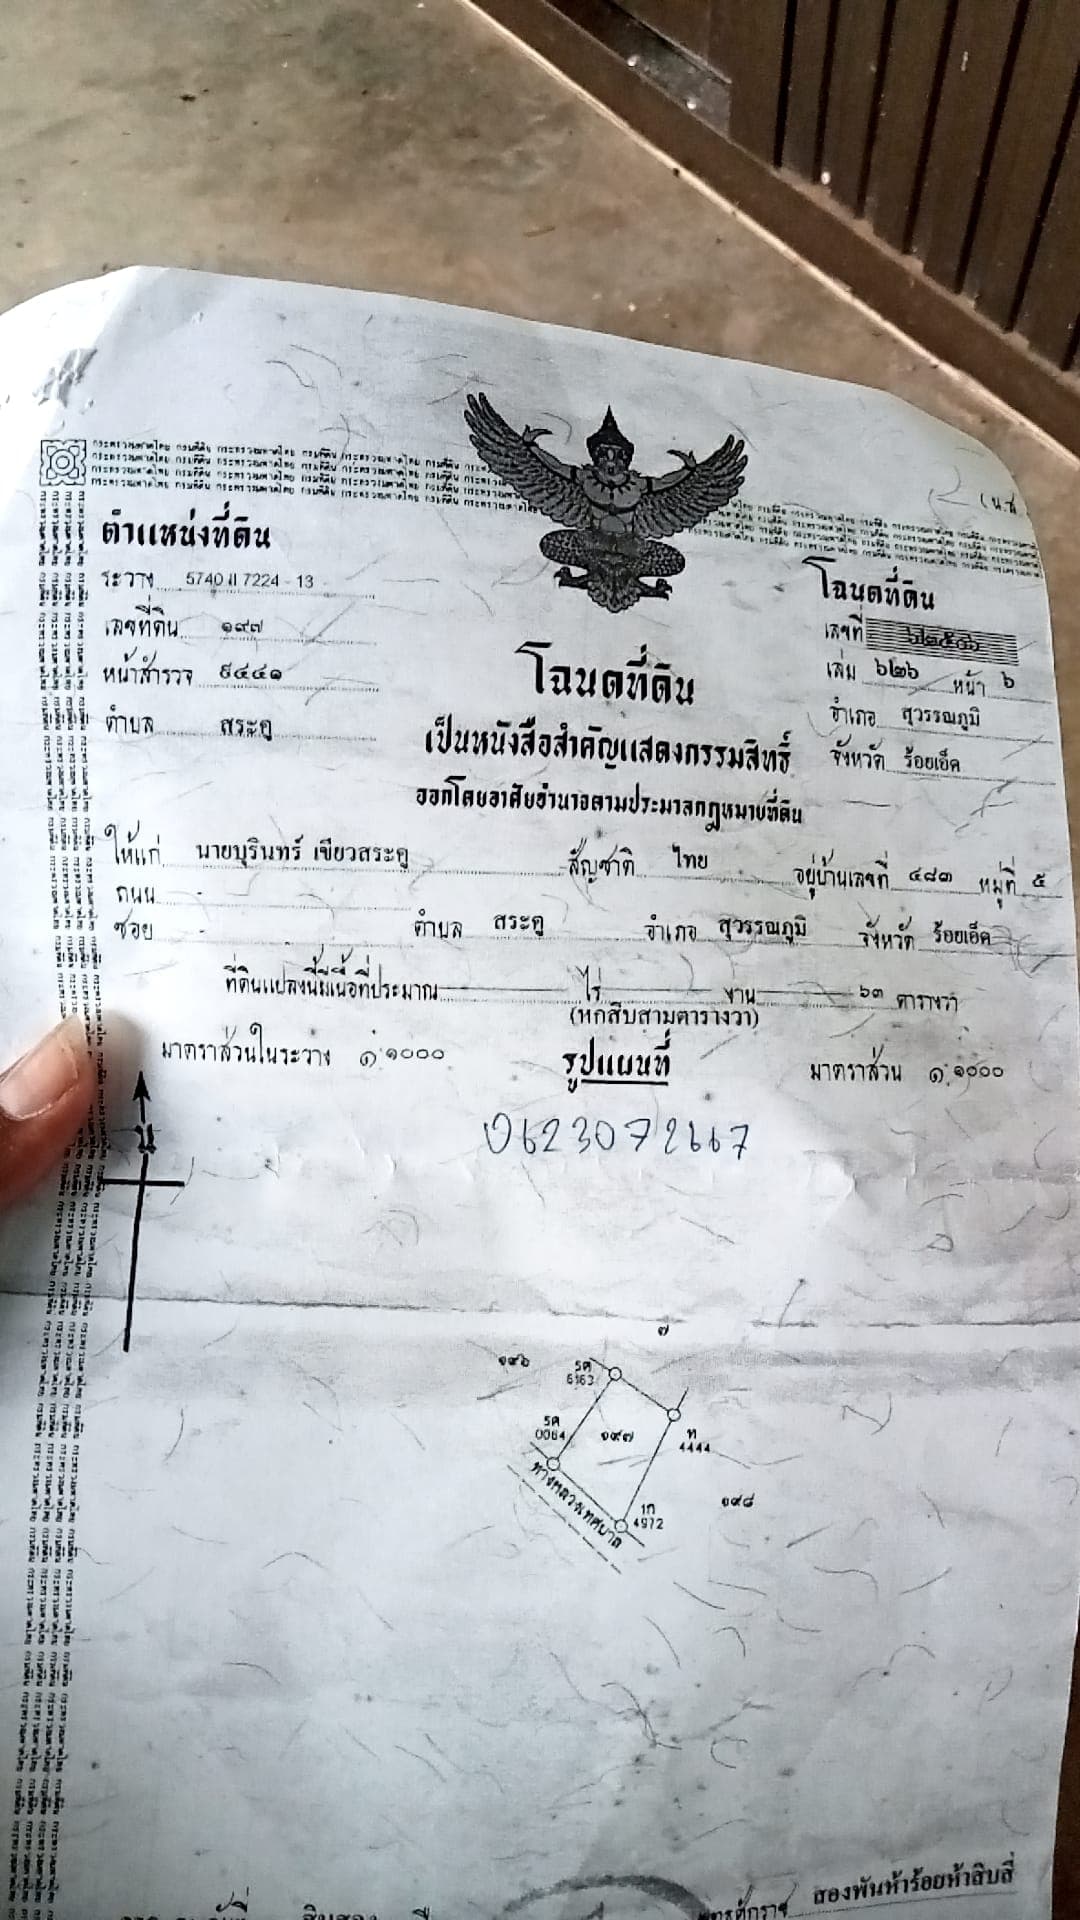 กระทรวงมหาดไทย กรมที่ดิน
(น.ส
ตำแหน่งที่ดิน
ระวาง 5740 II 7224 - 13
เลขที่ดิน ๑๙๗
หน้าสำรวจ ๙๔๔๑
ตำบล สระคู
โฉนดที่ดิน
เลขที่ ๖๒๕๐๖
เล่ม ๖๒๖ หน้า ๖
อำเภอ สุวรรณภูมิ
จังหวัด ร้อยเอ็ด
โฉนดที่ดิน
เป็นหนังสือสำคัญแสดงกรรมสิทธิ์
ออกโดยอาศัยอำนาจตามประมวลกฎหมายที่ดิน
ให้แก่ นายบุรินทร์ เขียวสระคู สัญชาติ ไทย อยู่บ้านเลขที่ ๔๘๓ หมู่ที่ ๕
ถนน -
ซอย - ตำบล สระคู อำเภอ สุวรรณภูมิ จังหวัด ร้อยเอ็ด
ที่ดินแปลงนี้มีเนื้อที่ประมาณ ไร่ งาน ๖๓ ตารางวา
(หกสิบสามตารางวา)
มาตราส่วนในระวาง ๑:๑๐๐๐ รูปแผนที่ มาตราส่วน ๑:๑๐๐๐
น
0623072667
๗
๑๙๖
รด
6163
รด
0064
๑๙๗
ท
4444
ทางหลวงเทศบาล
1ก
4972
๑๙๘
สองพันห้าร้อยห้าสิบสี่